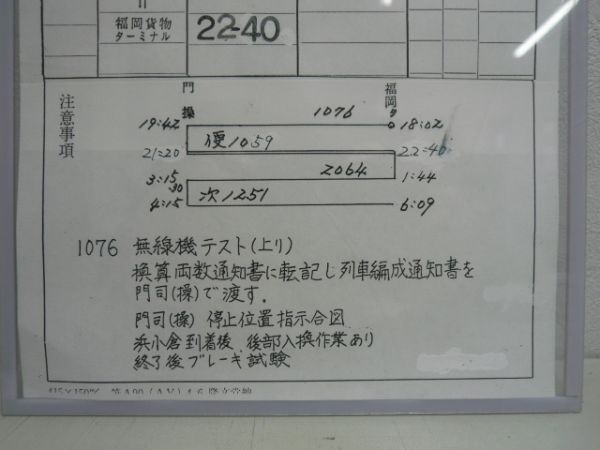 〃
福岡貨物
ターミナル
22-40
注意事項
門操
福岡タ
19:42 1076 18:02
21:20 便1059 22:40
3:15 2064 1:44
30
4:15 次1251 6:09
1076 無線機テスト(上り)
換算両数通知書に転記し列車編成通知書を
門司(操)で渡す.
門司(操) 停止位置指示合図
浜小倉到着後 後部入換作業あり
終了後ブレーキ試験